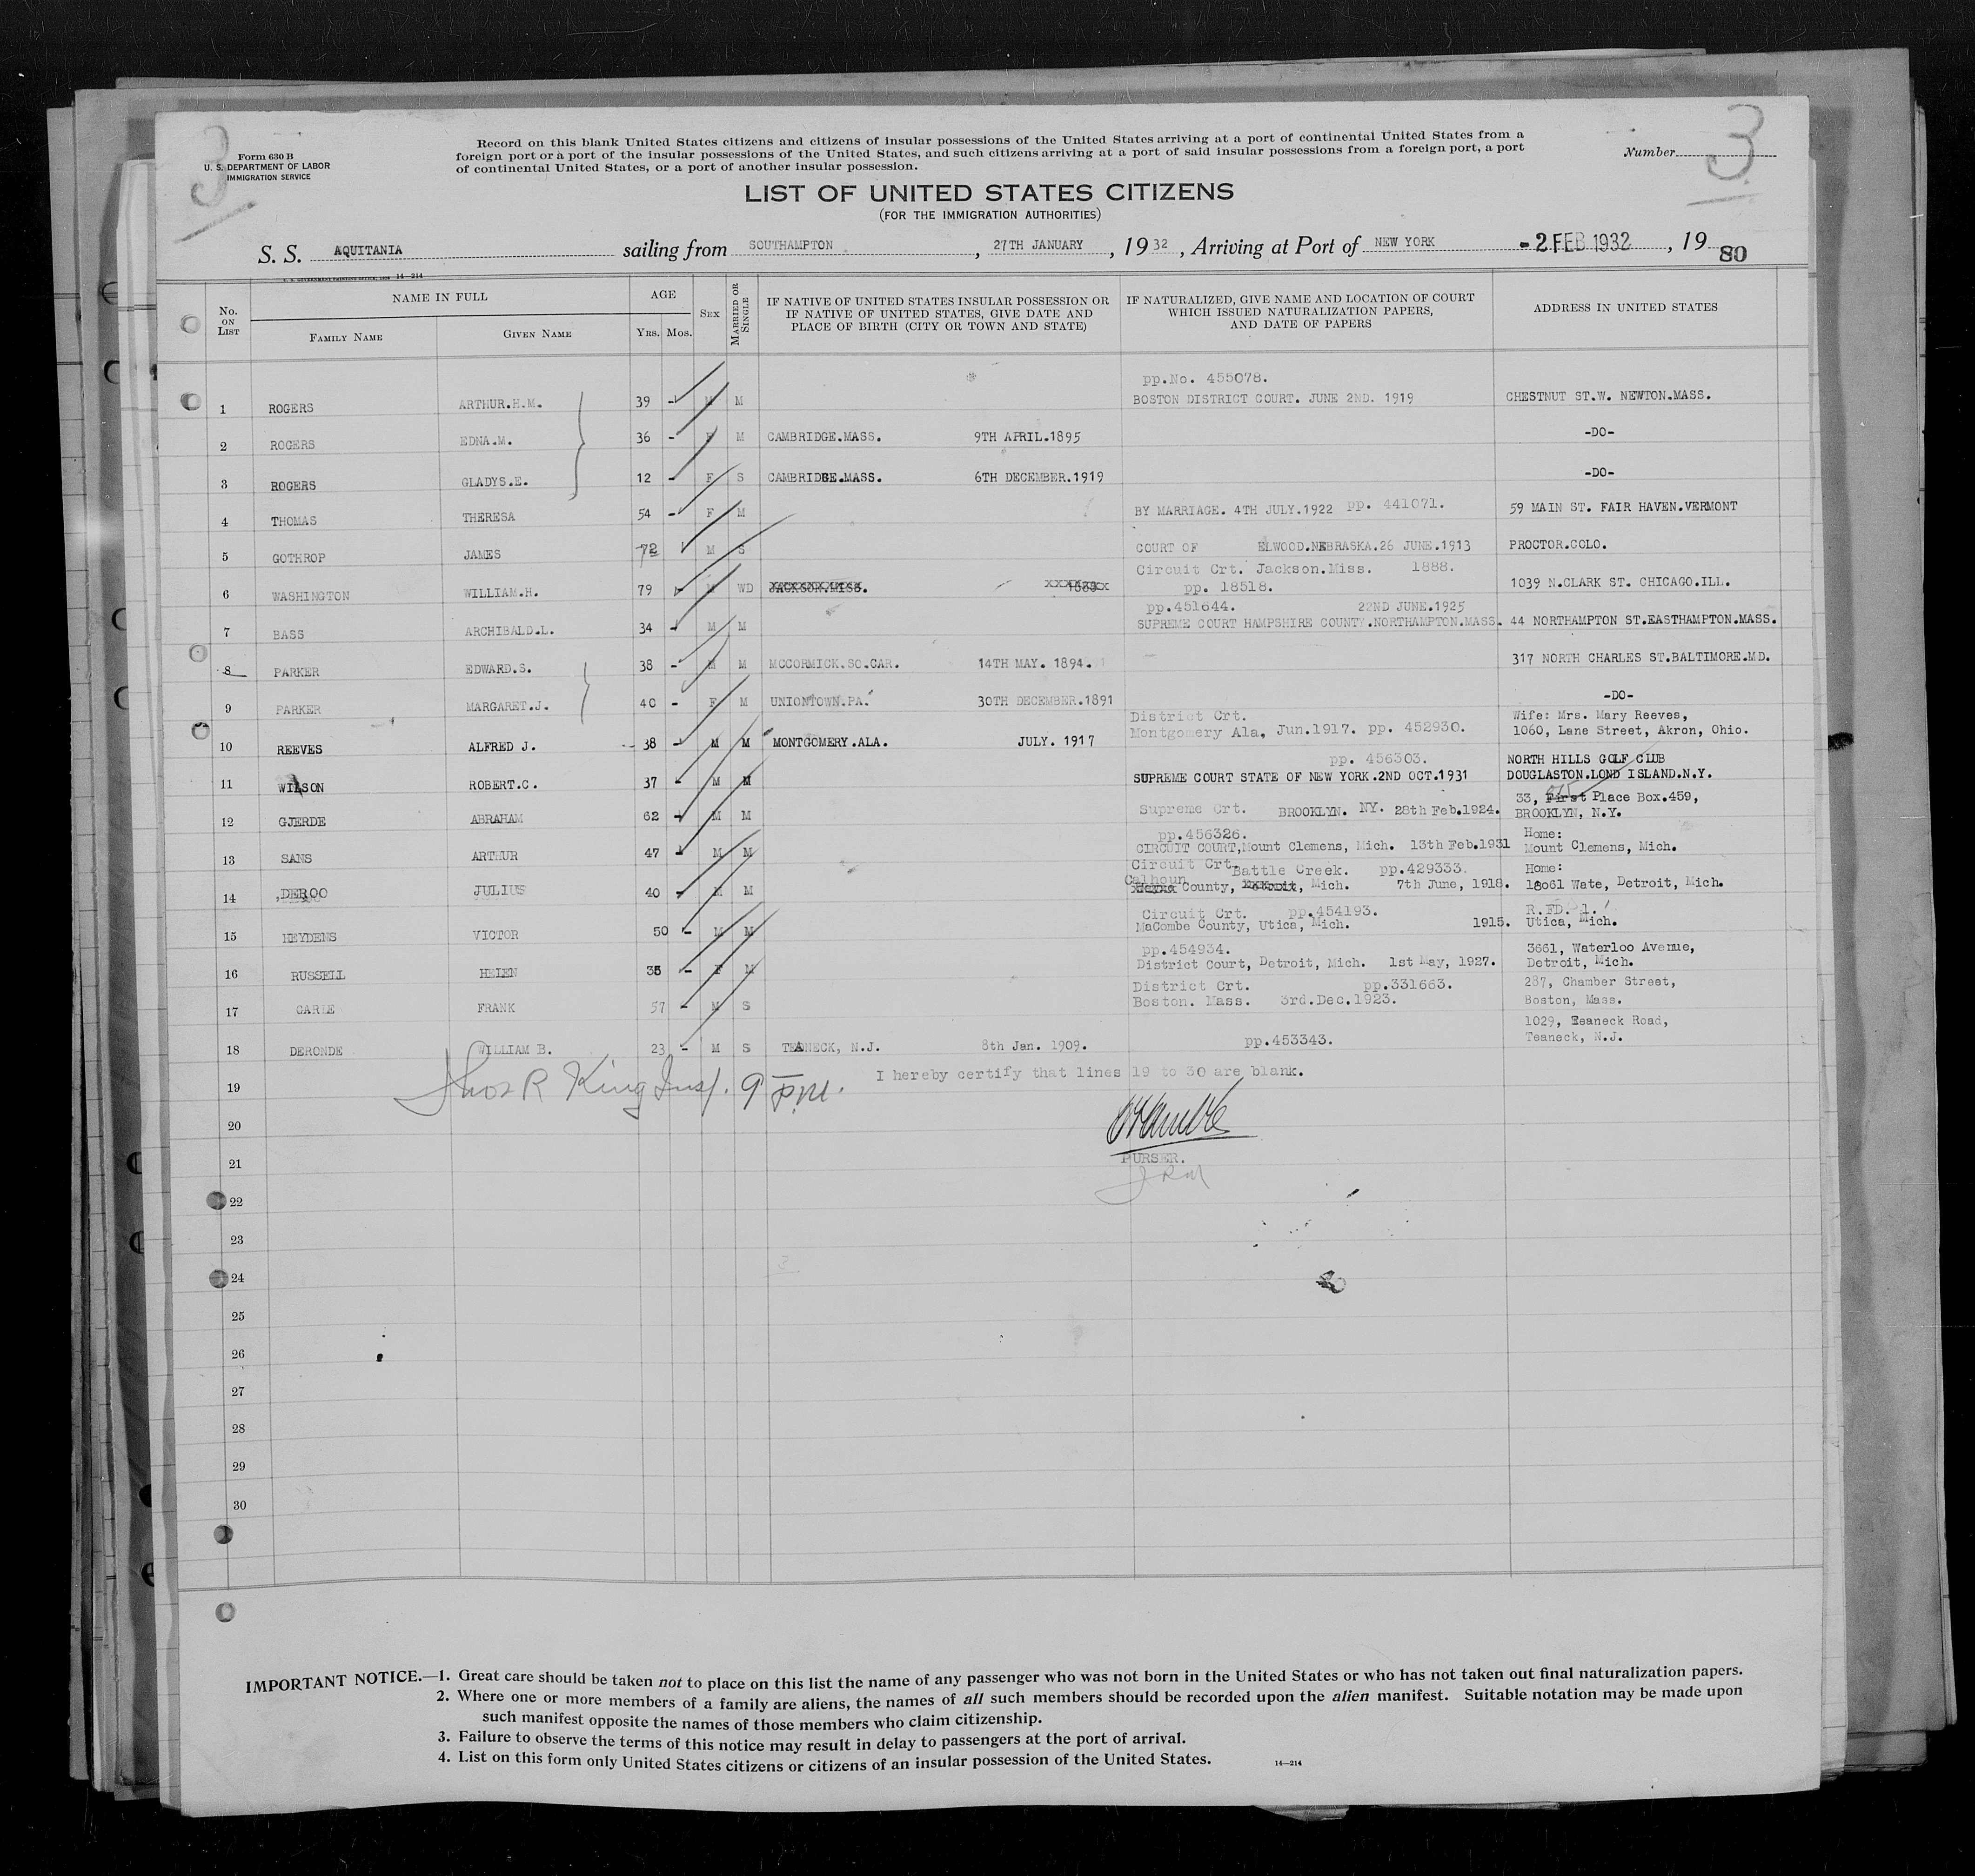 3
3
Form 630 B
U. S. DEPARTMENT OF LABOR
IMMIGRATION SERVICE
Record on this blank United States citizens and citizens of insular possessions of the United States arriving at a port of continental United States from a
foreign port or a port of the insular possessions of the United States, and such citizens arriving at a port of said insular possessions from a foreign port, a port
of continental United States, or a port of another insular possession.
Number
LIST OF UNITED STATES CITIZENS
(FOR THE IMMIGRATION AUTHORITIES)
S. S. AQUITANIA sailing from SOUTHAMPTON , 27TH JANUARY , 1932 , Arriving at Port of NEW YORK -2 FEB 1932 , 19
80
14—214
No. ON LIST NAME IN FULL AGE SEX MARRIED OR SINGLE IF NATIVE OF UNITED STATES INSULAR POSSESSION OR IF NATIVE OF UNITED STATES, GIVE DATE AND PLACE OF BIRTH (CITY OR TOWN AND STATE) IF NATURALIZED, GIVE NAME AND LOCATION OF COURT WHICH ISSUED NATURALIZATION PAPERS, AND DATE OF PAPERS ADDRESS IN UNITED STATES
FAMILY NAME GIVEN NAME YRS. MOS.
pp.No. 455078.
1 ROGERS ARTHUR.H.M. 39 - M M BOSTON DISTRICT COURT. JUNE 2ND. 1919 CHESTNUT ST.W. NEWTON.MASS.
2 ROGERS EDNA.M. 36 - F M CAMBRIDGE.MASS. 9TH APRIL.1895 -DO-
3 ROGERS GLADYS.E. 12 - F S CAMBRIDGE.MASS. 6TH DECEMBER.1919 -DO-
4 THOMAS THERESA 54 - F M BY MARRIAGE. 4TH JULY.1922 pp. 441071. 59 MAIN ST. FAIR HAVEN.VERMONT
5 GOTHROP JAMES 72 M S COURT OF ELWOOD.NEBRASKA.26 JUNE.1913 PROCTOR.COLO.
Circuit Crt. Jackson.Miss. 1888.
6 WASHINGTON WILLIAM.H. 79 - M WD JACKSON.MISS. pp. 18518. 1039 N.CLARK ST. CHICAGO.ILL.
pp.451644. 22ND JUNE.1925
7 BASS ARCHIBALD.L. 34 - M M SUPREME COURT HAMPSHIRE COUNTY.NORTHAMPTON.MASS. 44 NORTHAMPTON ST.EASTHAMPTON.MASS.
8 PARKER EDWARD.S. 38 - M M MCCORMICK.SO.CAR. 14TH MAY. 1894. 317 NORTH CHARLES ST.BALTIMORE.MD.
9 PARKER MARGARET.J. 40 - F M UNIONTOWN.PA. 30TH DECEMBER.1891 -DO-
District Crt. Wife: Mrs. Mary Reeves,
Montgomery Ala, Jun.1917. pp. 452930. 1060, Lane Street, Akron, Ohio.
10 REEVES ALFRED J. 38 - M M MONTGOMERY.ALA. JULY. 1917
pp. 456303. NORTH HILLS GOLF CLUB
11 WILSON ROBERT.C. 37 - M M SUPREME COURT STATE OF NEW YORK.2ND OCT.1931 DOUGLASTON.LOND ISLAND.N.Y.
33, First Place Box.459,
12 GJERDE ABRAHAM 62 - M M Supreme Crt. BROOKLYN. NY. 28th Feb.1924. BROOKLYN, N.Y.
pp.456326. Home:
13 SANS ARTHUR 47 - M M CIRCUIT COURT,Mount Clemens, Mich. 13th Feb.1931 Mount Clemens, Mich.
Circuit Crt. Battle Creek. pp.429333. Home:
14 DEROO JULIUS 40 - M M Calhoun County, Mich. 7th June, 1918. 18061 Wate, Detroit, Mich.
Circuit Crt. pp.454193. R.FD. 1.
15 HEYDENS VICTOR 50 - M M MaCombe County, Utica, Mich. 1915. Utica, Mich.
pp.454934. 3661, Waterloo Avenue,
16 RUSSELL HELEN 35 - F M District Court, Detroit, Mich. 1st May, 1927. Detroit, Mich.
District Crt. pp.331663. 287, Chamber Street,
17 CARLE FRANK 57 - M S Boston. Mass. 3rd.Dec.1923. Boston, Mass.
1029, Teaneck Road,
18 DERONDE WILLIAM B. 23 - M S TEANECK, N.J. 8th Jan. 1909. pp.453343. Teaneck, N.J.
19 Thos R King Insp. 9 P.M. I hereby certify that lines 19 to 30 are blank.
20
21 PURSER.
22
23
24
25
26
27
28
29
30
IMPORTANT NOTICE.—1. Great care should be taken not to place on this list the name of any passenger who was not born in the United States or who has not taken out final naturalization papers.
2. Where one or more members of a family are aliens, the names of all such members should be recorded upon the alien manifest. Suitable notation may be made upon
such manifest opposite the names of those members who claim citizenship.
3. Failure to observe the terms of this notice may result in delay to passengers at the port of arrival.
4. List on this form only United States citizens or citizens of an insular possession of the United States. 14—214